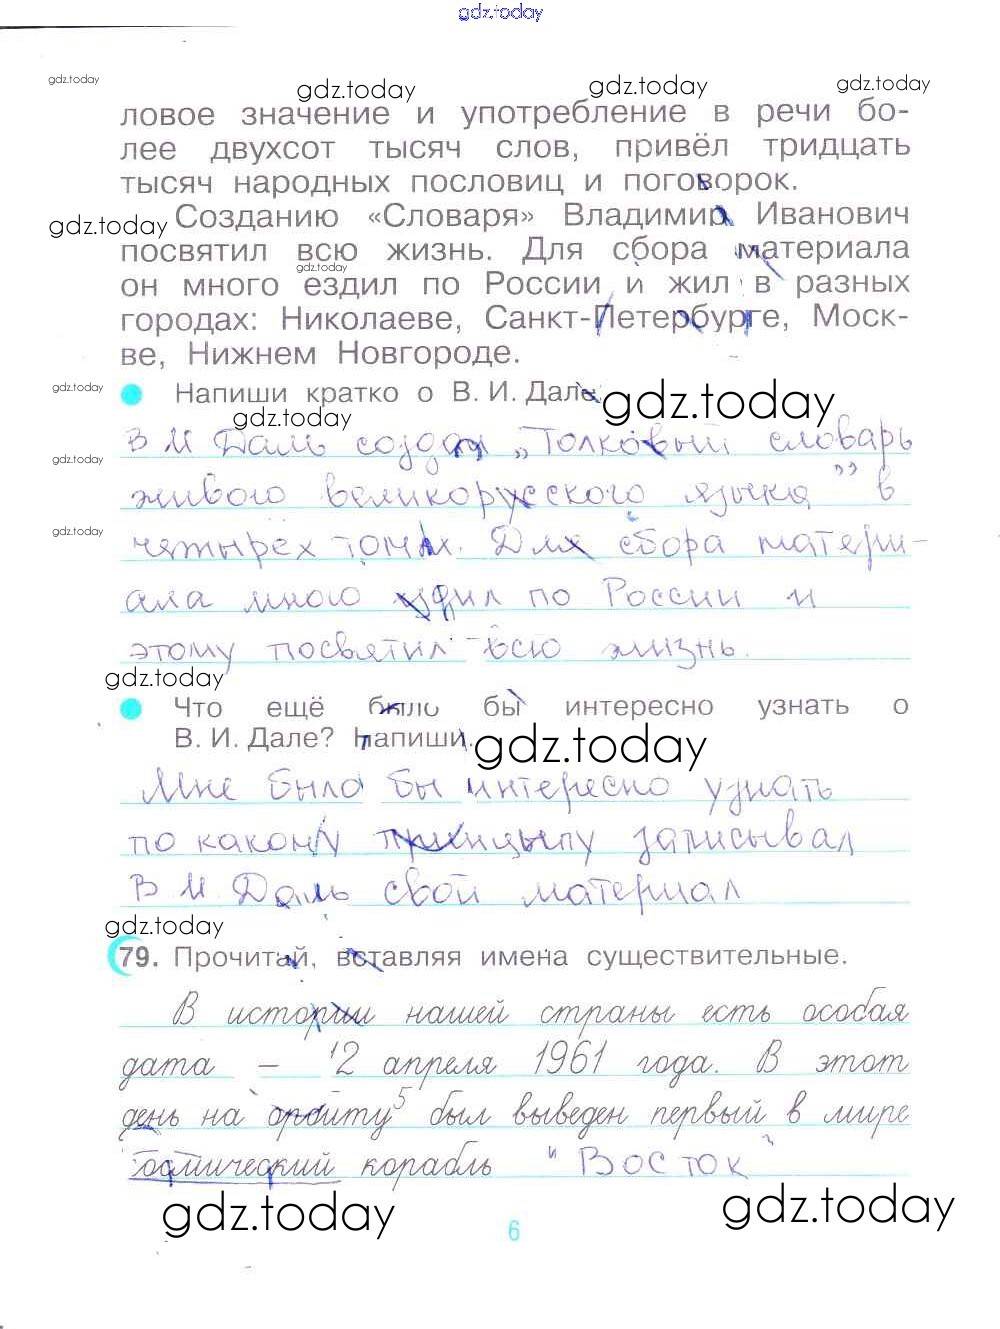 gdz.today
gdz.today
gdz.today
gdz.today
gdz.today
ловое значение и употребление в речи бо-
лее двухсот тысяч слов, привёл тридцать
тысяч народных пословиц и поговорок.
Созданию «Словаря» Владимир Иванович
gdz.today
посвятил всю жизнь. Для сбора материала
gdz.today
он много ездил по России и жил в разных
городах: Николаеве, Санкт-Петербурге, Моск-
ве, Нижнем Новгороде.
gdz.today
Напиши кратко о В. И. Дале.
gdz.today
gdz.today
В И Даль создал „Толковый словарь
gdz.today
живого великорусского языка” в
gdz.today
четырех томах. Для сбора матери-
ала много ездил по России и
этому посвятил всю жизнь.
gdz.today
Что ещё было бы интересно узнать о
В. И. Дале? Напиши.
gdz.today
Мне было бы интересно узнать
по какому принципу записывал
В И Даль свой материал
gdz.today
79. Прочитай, вставляя имена существительные.
В истории нашей страны есть особая
дата – 12 апреля 1961 года. В этот
день на орбиту⁵ был выведен первый в мире
космический корабль "Восток"
gdz.today
gdz.today
6